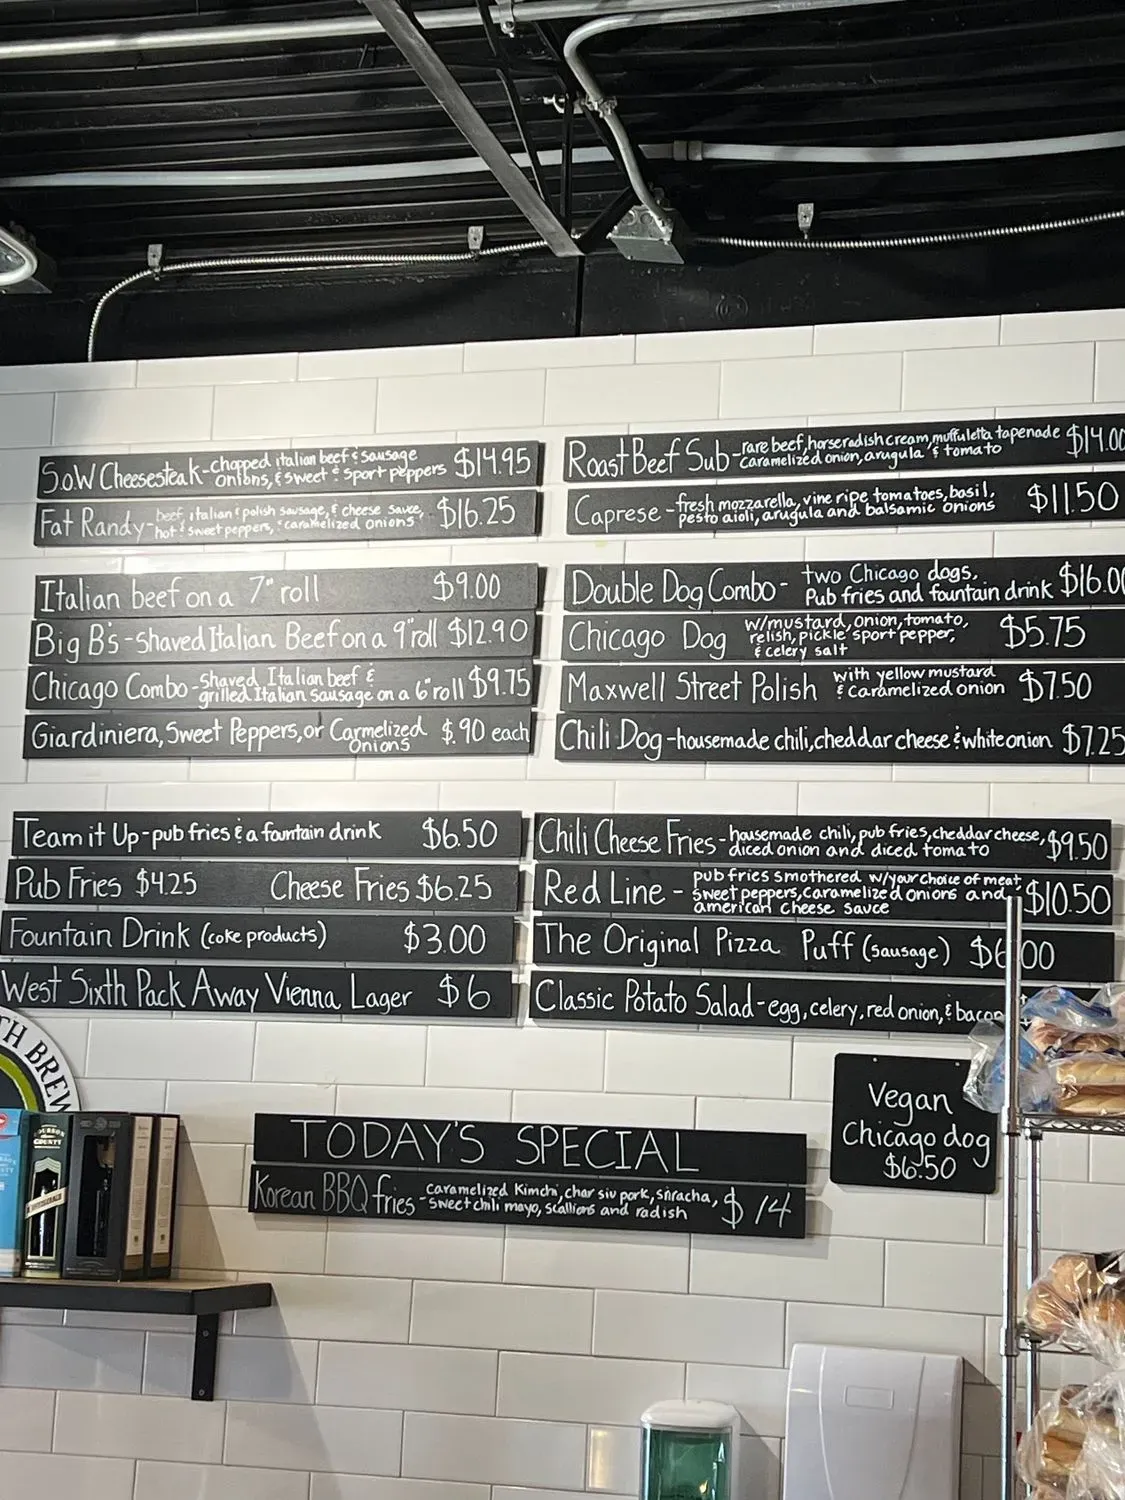 S.o.W Cheesesteak-chopped italian beef & sausage
onions, & sweet & sport peppers $14.95
Fat Randy-beef, italian & polish sausage, & cheese sauce,
hot & sweet peppers, & caramelized onions $16.25
Italian beef on a 7" roll $9.00
Big B's-shaved Italian Beef on a 9" roll $12.90
Chicago Combo-shaved Italian beef &
grilled Italian sausage on a 6" roll $9.75
Giardiniera, Sweet Peppers, or Carmelized
Onions $.90 each
Roast Beef Sub-rare beef, horseradish cream, muffuletta tapenade
caramelized onion, arugula & tomato $14.00
Caprese-fresh mozzarella, vine ripe tomatoes, basil,
pesto aioli, arugula and balsamic onions $11.50
Double Dog Combo- two Chicago dogs,
Pub fries and fountain drink $16.00
Chicago Dog w/mustard, onion, tomato,
relish, pickle sport pepper,
& celery salt $5.75
Maxwell Street Polish with yellow mustard
& caramelized onion $7.50
Chili Dog-housemade chili, cheddar cheese & white onion $7.25
Team it Up-pub fries & a fountain drink $6.50
Pub Fries $4.25 Cheese Fries $6.25
Fountain Drink (coke products) $3.00
West Sixth Pack Away Vienna Lager $6
Chili Cheese Fries-housemade chili, pub fries, cheddar cheese,
diced onion and diced tomato $9.50
Red Line- pub fries smothered w/your choice of meat,
sweet peppers, caramelized onions and
american cheese sauce $10.50
The Original Pizza Puff (sausage) $6.00
Classic Potato Salad-egg, celery, red onion, & bacon
Vegan
Chicago dog
$6.50
TODAY'S SPECIAL
Korean BBQ fries-caramelized Kimchi, char siu pork, sriracha,
sweet chili mayo, scallions and radish $14
TH BREW
BOURBON
COUNTY